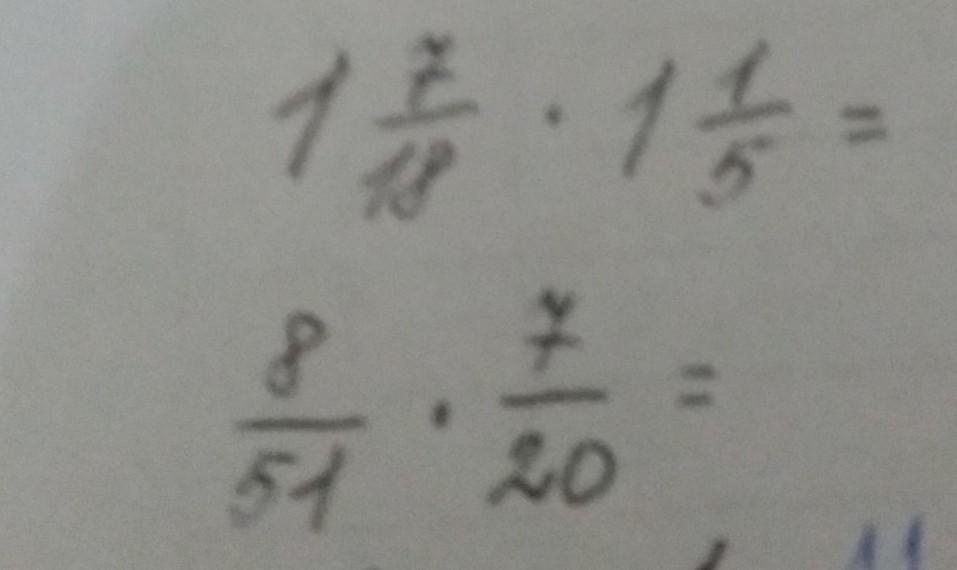 1 7/18 · 1 1/5 =
8/51 · 7/20 =